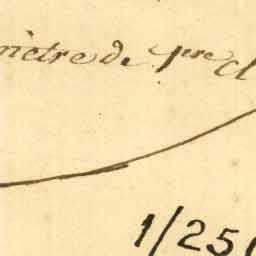 mètre de 1re cl
1/250